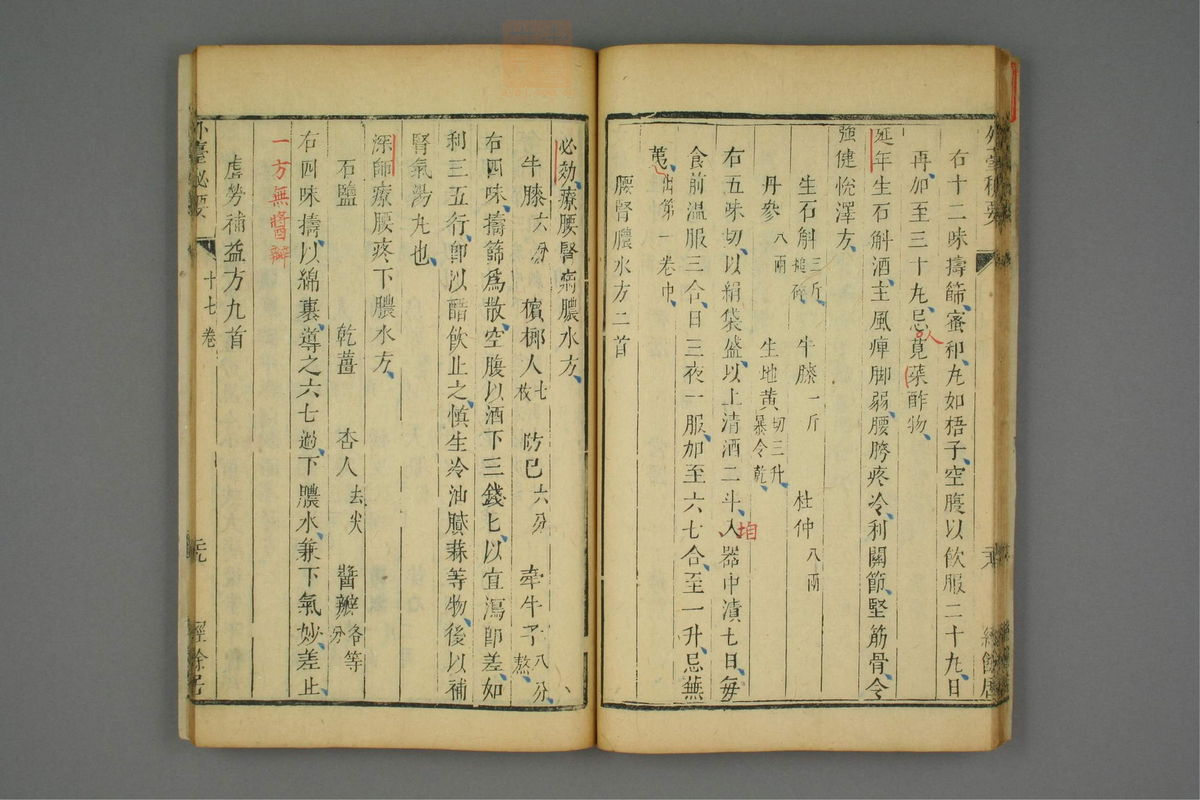 外臺秘要
右十二味擣篩蜜和丸如梧子空腹以飲服二十丸日
再加至三十丸忌人莧菜酢物
延年生石斛酒主風痺脚弱腰胯疼冷利關節堅筋骨令
強健悅澤方
生石斛三斤搥碎 牛膝一斤 杜仲八兩
丹參八兩 生地黃切三升暴令乾
右五味切以絹袋盛以上清酒二斗入坩器中漬七日每
食前溫服三合日三夜一服加至六七合至一升忌蕪
荑出第一卷中
腰腎膿水方二首
必効療腰腎病膿水方
牛膝六分 檳榔人七枚 防已六分 牽牛子八分熬
右四味擣篩爲散空腹以酒下三錢匕以宜瀉卽差如
利三五行卽以醋飲止之慎生冷油膩蒜等物後以補
腎氣湯丸也
深師療腰疼下膿水方
石鹽 乾薑 杏人去尖 醬瓣各等分
右四味擣以綿裹導之六七過下膿水兼下氣妙差止
一方無醬瓣
虛勞補益方九首
外臺秘要
十七卷
經餘居